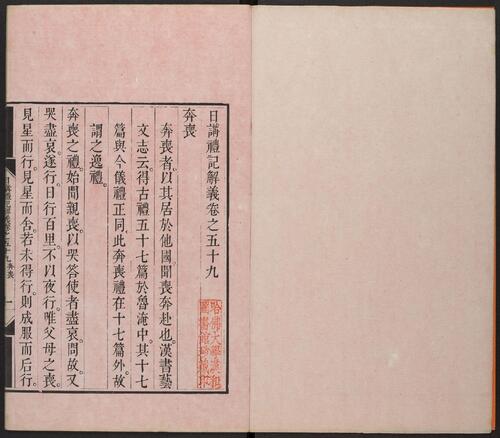 日講禮記解義卷之五十九
奔喪
奔喪者。以其居於他國。聞喪奔赴也。漢書藝
文志云。得古禮五十七篇於魯淹中。其十七
篇與今儀禮正同。此奔喪禮在十七篇外。故
謂之逸禮。
奔喪之禮。始聞親喪。以哭答使者盡哀。問故。又
哭盡哀。遂行。日行百里。不以夜行。唯父母之喪。
見星而行。見星而舍。若未得行。則成服而后行。
日講禮記解義卷之五十九 奔喪 一
哈佛大學漢和
圖書館珍藏印